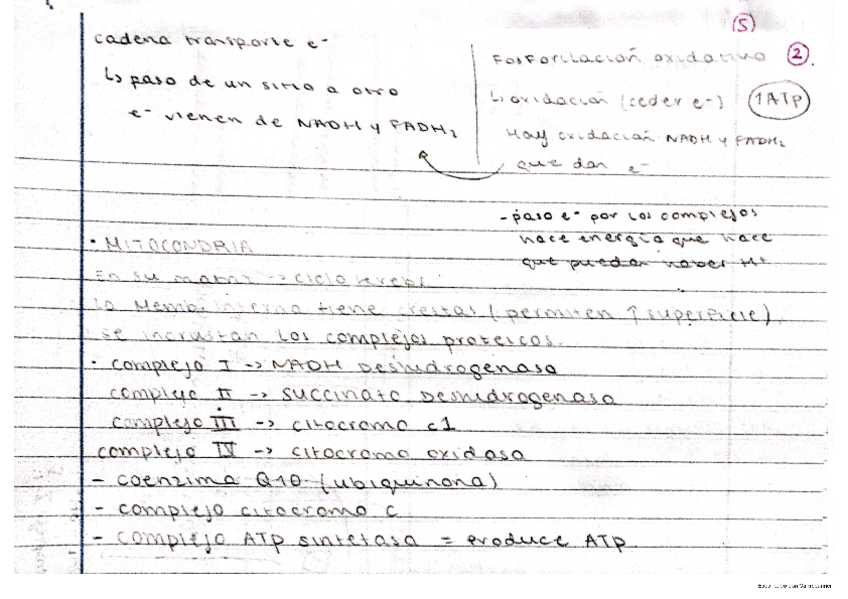 (5)
cadena transporte e-
↳ paso de un sitio a otro
e- vienen de NADH y FADH2
Fosforilación oxidativa (2).
↳ oxidación (ceder e-) (1ATP)
Hay oxidación NADH y FADH2
que dan e-
- paso e- por los complejos
hace energía que hace
que puedan mover H+
• MITOCONDRIA
En su matriz -> ciclo krebs
La Memb. interna tiene crestas (permiten ↑ superficie)
se incrustan los complejos proteicos.
• complejo I -> NADH Deshidrogenasa
complejo II -> succinato Deshidrogenasa
complejo III -> citocromo c1
complejo IV -> citocromo oxidasa
- coenzima Q10 (ubiquinona)
- complejo citocromo c
- complejo ATP sintetasa = produce ATP